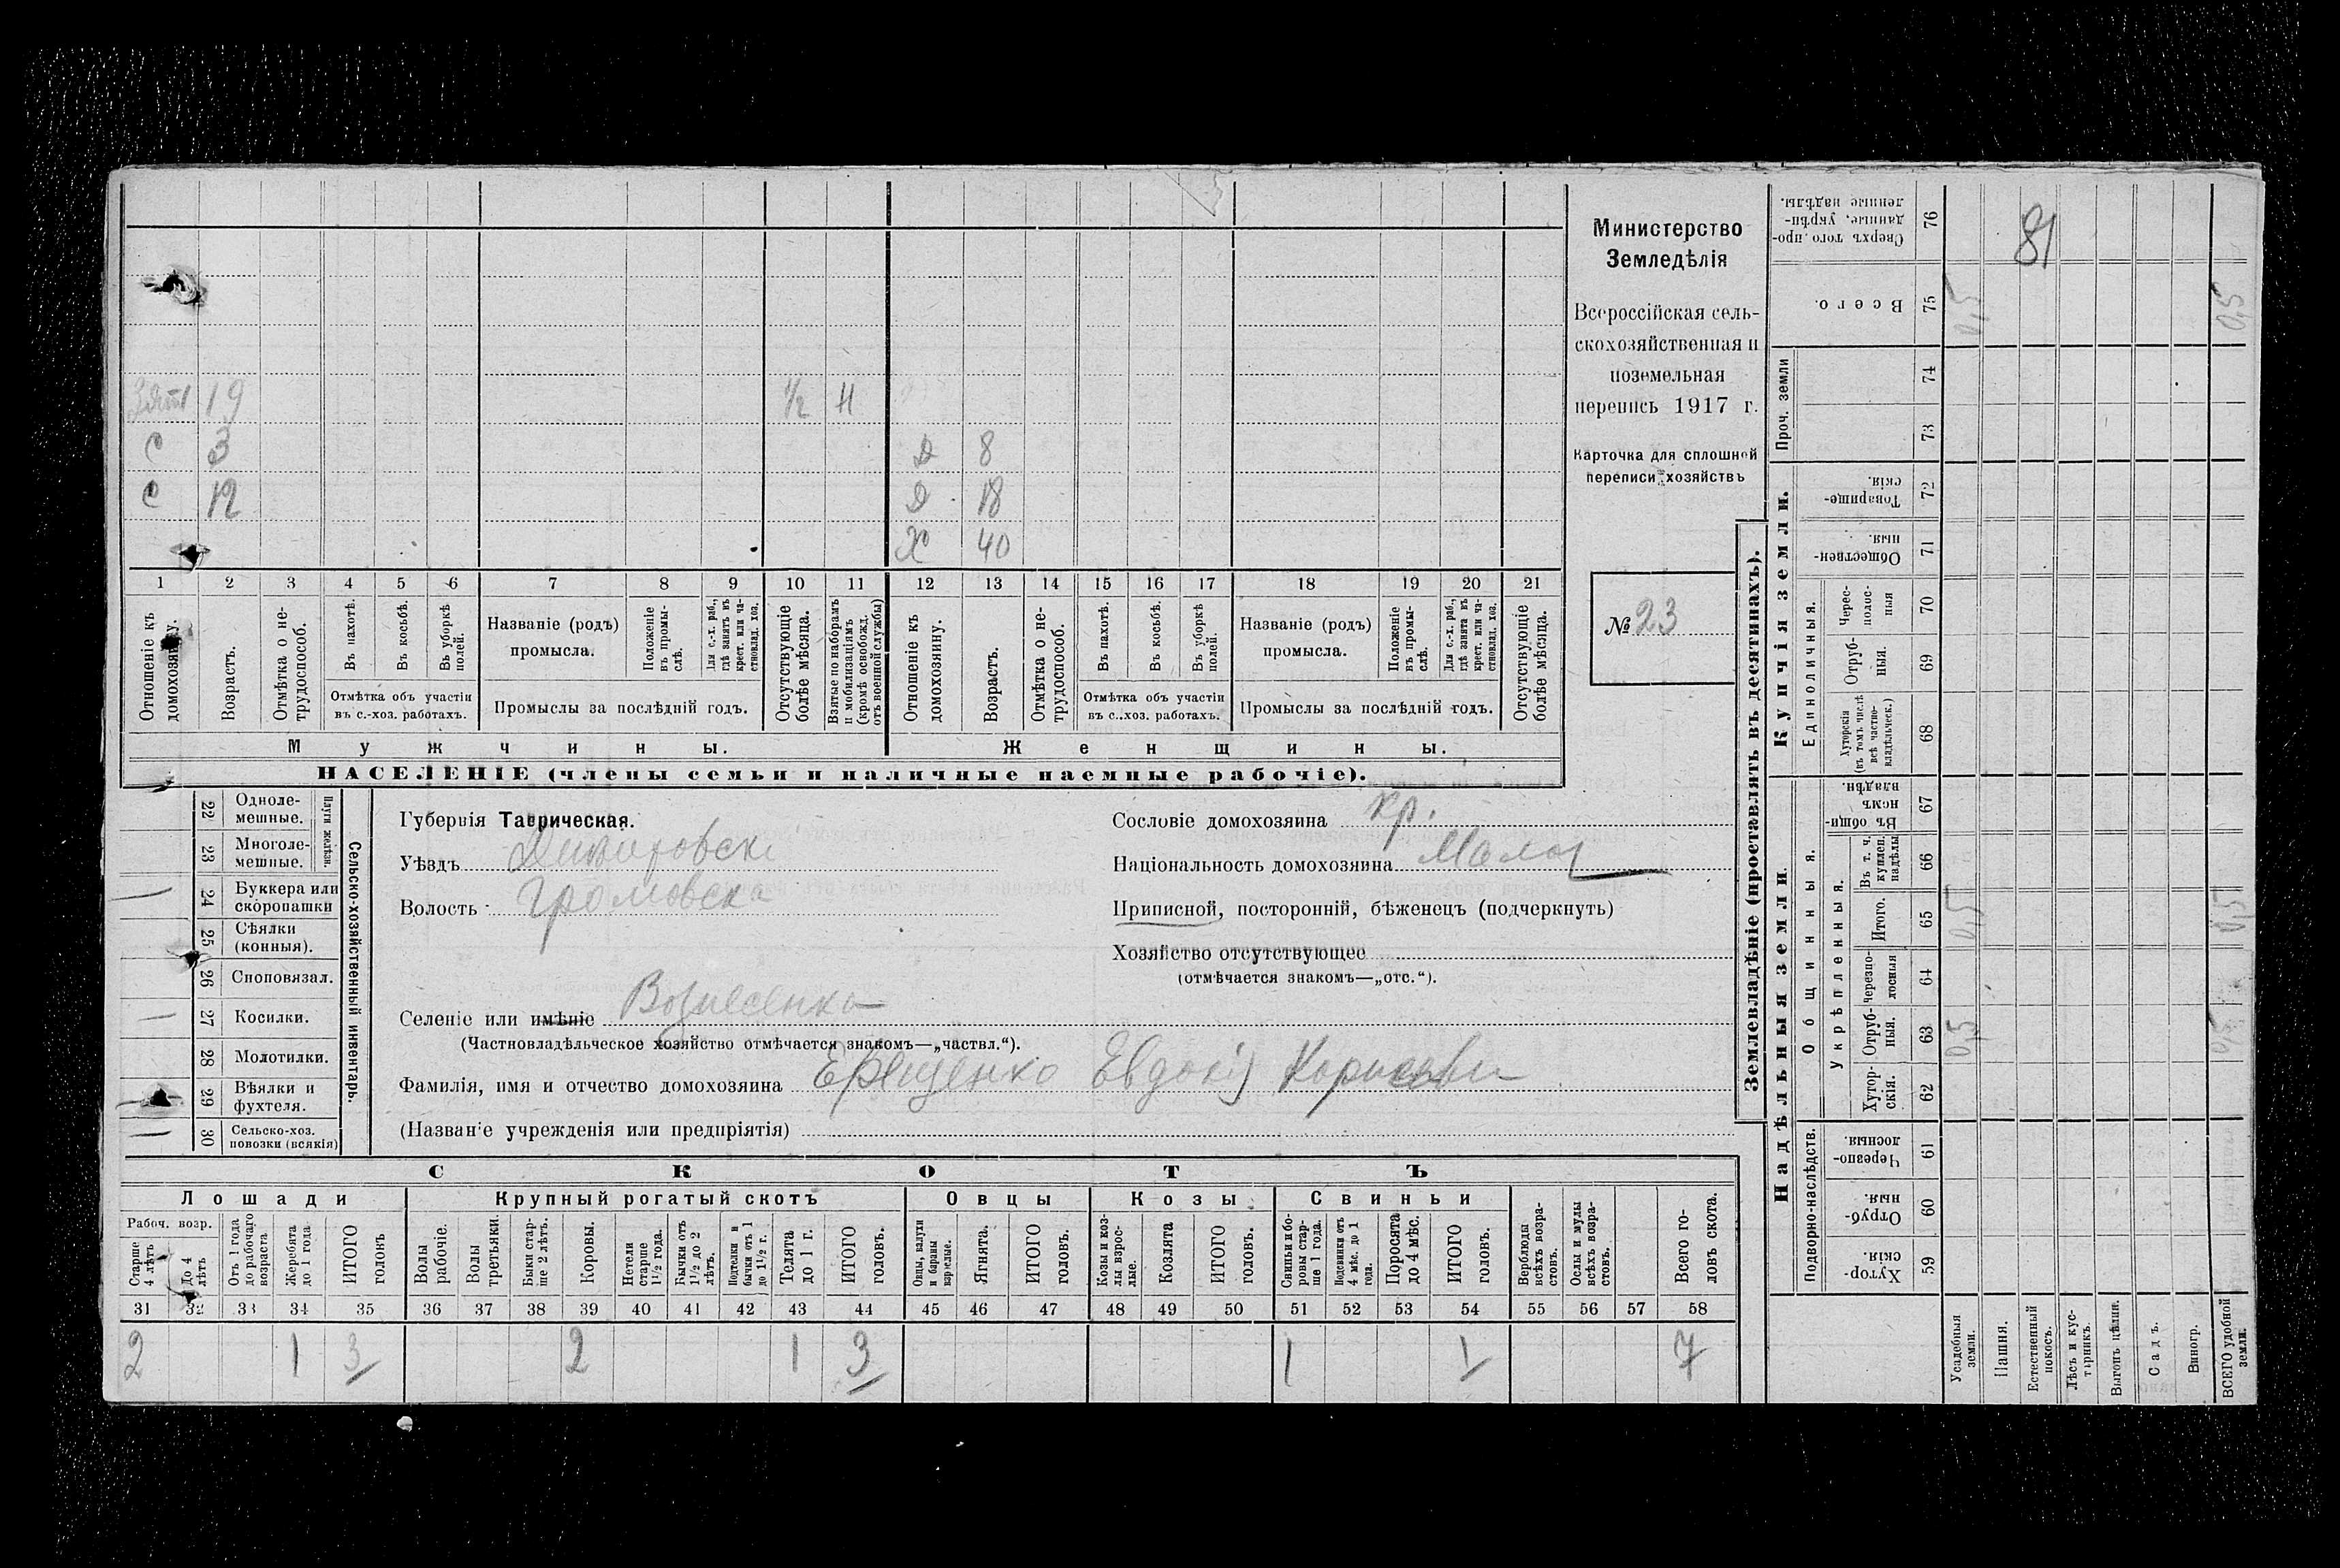 Зять 19 ½ Н
С 3 Д 8
С 12 Д 18
Х 40
1 2 3 4 5 6 7 8 9 10 11 12 13 14 15 16 17 18 19 20 21
Отношеніе къ домохозяину.
Возрастъ.
Отмѣтка о нетрудоспособ.
Въ пахотѣ.
Въ косьбѣ.
Въ уборкѣ полей.
Отмѣтка объ участіи
въ с.-хоз. работахъ.
Названіе (родъ)
промысла.
Положеніе въ промы-слѣ.
Для с.-х. раб., гдѣ занятъ въ крест. или ча-стновлад. хоз.
Промыслы за послѣдній годъ.
Отсутствующіе болѣе мѣсяца.
Взятые по наборамъ и мобилизаціямъ (кромѣ освобожд. отъ военной службы)
Отношеніе къ домохозяину.
Возрастъ.
Отмѣтка о не-трудоспособ.
Въ пахотѣ.
Въ косьбѣ.
Въ уборкѣ полей.
Отмѣтка объ участіи
въ с.-хоз. работахъ.
Названіе (родъ)
промысла.
Положеніе въ промы-слѣ.
Для с.-х. раб., гдѣ занята въ крест. или ча-стновлад. хоз.
Промыслы за послѣдній годъ.
Отсутствующіе болѣе мѣсяца.
Мужчины. Женщины.
НАСЕЛЕНІЕ (члены семьи и наличные наемные рабочіе).
Министерство
Земледѣлія
Всероссійская сель-
скохозяйственная и
поземельная
перепись 1917 г.
Карточка для сплошной
переписи хозяйствъ
№ 23
22 Одноле-мешные.
23 Многоле-мешные.
Плуги желѣзн.
24 Буккера или скоропашки
25 Сѣялки (конныя).
26 Сноповязал.
27 Косилки.
28 Молотилки.
29 Вѣялки и фухтеля.
30 Сельско-хоз. повозки (всякія)
Сельско-хозяйственный инвентарь.
Губернія Таврическая.
Уѣздъ Днѣпровскі
Волость Громовска
Селеніе или имѣніе Вознесенка
(Частновладѣльческое хозяйство отмѣчается знакомъ—„частвл.“).
Фамилія, имя и отчество домохозяина Ефещенко Евдокія
(Названіе учрежденія или предпріятія)
Сословіе домохозяина кр.
Національность домохозяина Малор
Приписной, посторонній, бѣженецъ (подчеркнуть)
Хозяйство отсутствующее
(отмѣчается знакомъ—„отс.“).
СКОТЪ
Лошади Крупный рогатый скотъ Овцы Козы Свиньи
Рабоч. возр.
Старше 4 лѣтъ
До 4 лѣтъ
Отъ 1 года до рабочаго возраста
Жеребята до 1 года
ИТОГО головъ
Волы рабочіе.
Волы третьяки.
Быки стар-ше 2 лѣтъ.
Коровы.
Нетели старше 1½ года.
Бычки отъ 1½ до 2 лѣтъ.
Подтелки и бычки отъ 1 до 1½ г.
Телята до 1 г.
ИТОГО головъ.
Овцы, валухи и бараны взрослые.
Ягнята.
ИТОГО головъ.
Козы и коз-лы взрос-лые.
Козлята
ИТОГО головъ.
Свиньи и бо-ровы стар-ше 1 года.
Подсвинки отъ 4 мѣс. до 1 года.
Поросята до 4 мѣс.
ИТОГО головъ.
Верблюды всѣхъ возра-стовъ.
Ослы и мулы всѣхъ возра-стовъ.
Всего го-ловъ скота.
31 32 33 34 35 36 37 38 39 40 41 42 43 44 45 46 47 48 49 50 51 52 53 54 55 56 57 58
2 1 3 2 1 3 1 1 7
Землевладѣніе (проставлять въ десятинахъ).
Купчія земли.
Надѣльныя земли
Сверхъ того, про-данные, укрѣп-ленные надѣлы. 76
81
Всего. 75 0,5 0,5
Проч. земли 74
73
Товарище-скія. 72
Обществен-ныя. 71
Единоличныя.
Черес-полос-ныя 70
Отруб-ныя. 69
Хуторскія (въ томъ числѣ всѣ частно-владѣльческ.) 68
Общинныя.
Въ общин-номъ владѣн. 67
Укрѣпленныя.
Въ т. ч. куплен. надѣлы 66
Итого. 65 0,5 0,5
Черезпо-лосныя 64
Отруб-ныя. 63 0,5 0,5
Хутор-скія. 62
Подворно-наслѣдств.
Черезпо-лосныя. 61
Отруб-ныя. 60
Хутор-скія. 59
Усадебныя земли.
Пашня.
Естественный покосъ.
Лѣсъ и кус-тарникъ.
Выгонъ цѣлин.
Садъ.
Виногр.
ВСЕГО удобной земли.